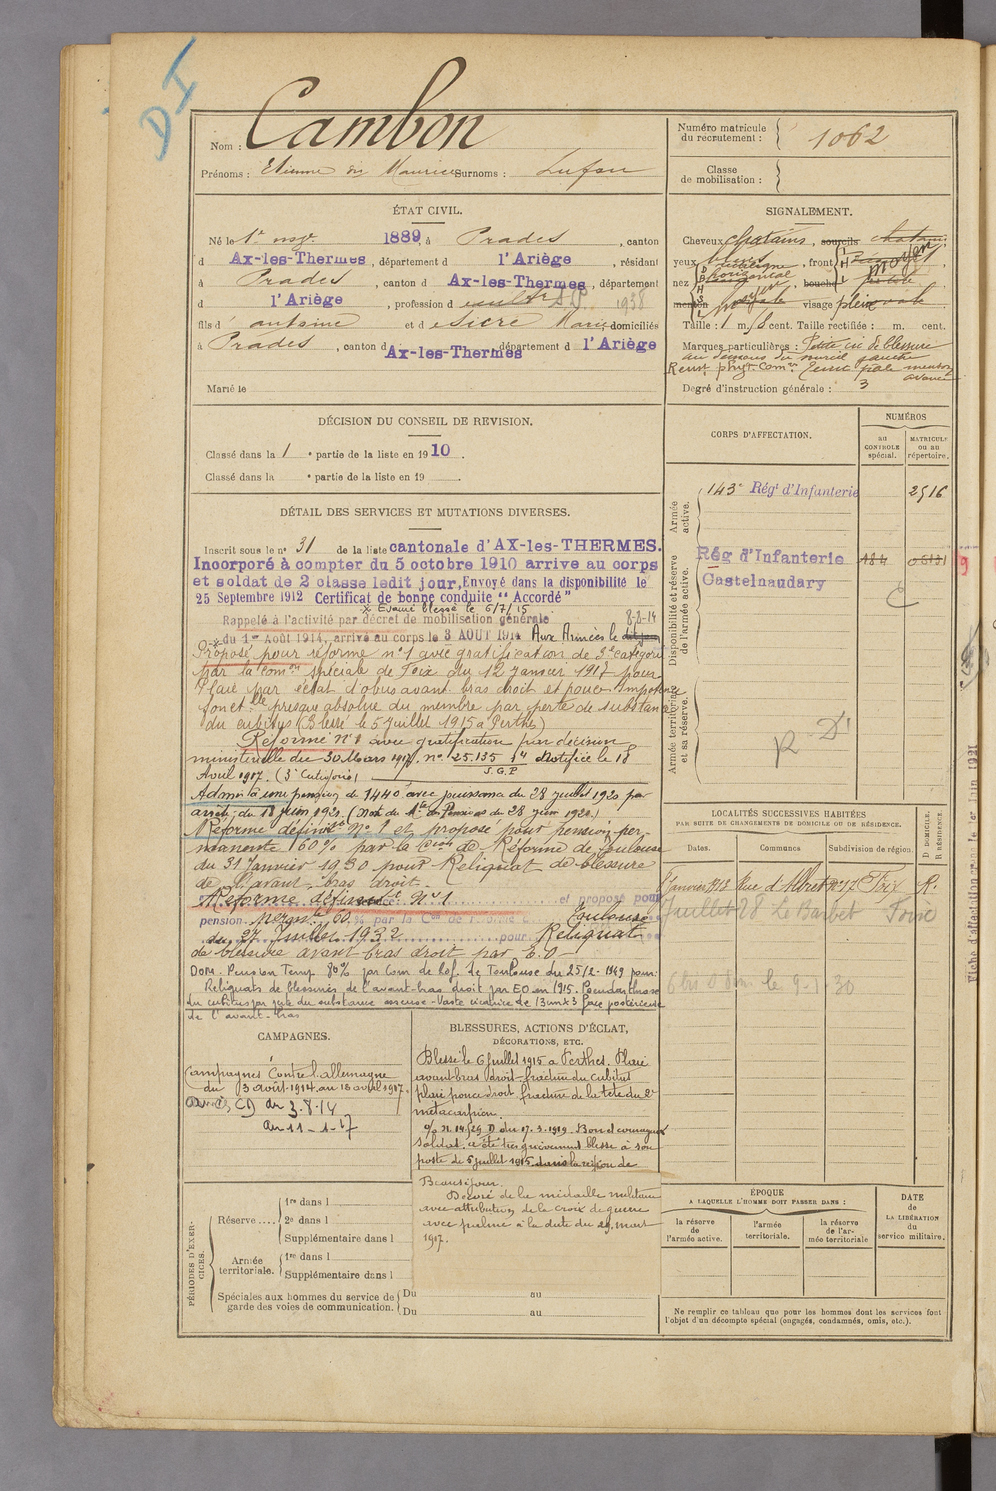 DI
Nom : Cambon
Prénoms : Etienne dis Maurice Surnoms :
Numéro matricule du recrutement : 1062
Classe de mobilisation :
ÉTAT CIVIL.
Né le 1er 1889, à Prades, canton
d Ax-les-Thermes, département d l'Ariège, résidant
à Prades, canton d Ax-les-Thermes, département
d l'Ariège, profession d 1938
fils d' antoine et de Sicre Marie domiciliés
à Prades, canton d Ax-les-Thermes département d l'Ariège
Marié le
SIGNALEMENT.
Cheveux chatains, sourcils chatains
yeux , front moyen
nez horizontal bouche
menton visage plein ovale
Taille : 1 m. 6 cent. Taille rectifiée : m. cent.
Marques particulières : Petite cic. de blessure
au dessous du sourcil gauche
Rens^t phys. Com^res Teint pale menton avancé
Degré d'instruction générale : 3
DÉCISION DU CONSEIL DE REVISION.
Classé dans la 1 e partie de la liste en 1910.
Classé dans la e partie de la liste en 19 .
CORPS D'AFFECTATION.
NUMÉROS
AU CONTROLE spécial.
MATRICULE OU AU répertoire.
Armée active.
143e Rég^t d'Infanterie 2516
Disponibilité et réserve de l'armée active.
Rég d'Infanterie
Castelnaudary
Armée territoriale et sa réserve.
DÉTAIL DES SERVICES ET MUTATIONS DIVERSES.
Inscrit sous le n° 31 de la liste cantonale d'AX-les-THERMES.
Incorporé à compter du 5 octobre 1910 arrive au corps
et soldat de 2 classe ledit jour, Envoyé dans la disponibilité le
25 Septembre 1912 Certificat de bonne conduite "Accordé"
x Evacué blessé le 6/7/15
Rappelé à l'activité par décret de mobilisation générale 8-8-14
du 1er Août 1914, arrivé au corps le 3 AOUT 1914 Aux Armées le dit jour
Proposé pour réforme n°1 avec gratification de 3e catégorie
par la Com^on spéciale de Foix du 12 Janvier 1917 pour
Plaie par éclat d'obus avant-bras droit et pouce. Impotence
fonct^lle presque absolue du membre par perte de substance
du cubitus (Blessé le 5 juillet 1915 à Perthes)
Réformé n°1 avec gratification par décision
ministérielle du 30 Mars 1917, n° 25.135 1/4 S.G.P Notifiée le 18
Avril 1917. (3e Catégorie)
Admis à une pension de 1440 avec jouissance du 28 juillet 1920 par
arrêté du 18 juin 1921. (Not. du M^tre des Pensions du 28 juin 1921.)
Réformé définitif N°1 et proposé pour pension per-
manente 60% par la C^on de Réforme de Toulouse
du 31 Janvier 1930 pour Reliquat de blessure
de l'avant-bras droit.
Réformé définitif N°1 et proposé pour
pension perm^te 60 % par la C^on de Toulouse
du 27 Juillet 1932 pour Reliquat
de blessure avant-bras droit par E.O -
Dom. Pension Temp. 80% par Com de Réf. de Toulouse du 25/2-1949 pour:
Reliquats de blessures de l'avant-bras droit par EO en 1915. Pseudarthrose
du cubitus par perte de substance osseuse - Vaste cicatrice de 13cm x 3 face postérieure
de l'avant-bras
LOCALITÉS SUCCESSIVES HABITÉES
PAR SUITE DE CHANGEMENTS DE DOMICILE OU DE RÉSIDENCE.
Dates. Communes Subdivision de région. D DOMICILE. R RÉSIDENCE.
Janvier 1918 Rue d n°17 Foix R.
Juillet 28 Le Barbet Foix
le 9-1-30
CAMPAGNES.
Campagnes Contre l'allemagne
du 3 août 1914 au 18 avril 1917.
du 3.8.14
au 11-1-17
BLESSURES, ACTIONS D'ÉCLAT,
DÉCORATIONS, ETC.
Blessé le 6 Juillet 1915 à Perthes. Plaie
avant-bras droit - fracture du Cubitus
plaie pouce droit, fracture de la tête du 2e
métacarpien.
o/o n. 14.529 D du 17.3.1919 - Bon et courageux
soldat, a été très grièvement blessé à son
poste le 5 juillet 1915 dans la région de
Beauséjour.
Décoré de la médaille militaire
avec attribution de la croix de guerre
avec palme à la date du 29 mars
1917.
PÉRIODES D'EXERCICES.
Réserve ....
1re dans l
2e dans l
Supplémentaire dans l
Armée territoriale.
1re dans l
Supplémentaire dans l
Spéciales aux hommes du service de garde des voies de communication.
Du au
Du au
ÉPOQUE
A LAQUELLE L'HOMME DOIT PASSER DANS :
la réserve de l'armée active.
l'armée territoriale.
la réserve de l'armée territoriale
DATE de LA LIBÉRATION du service militaire.
Ne remplir ce tableau que pour les hommes dont les services font
l'objet d'un décompte spécial (engagés, condamnés, omis, etc.).